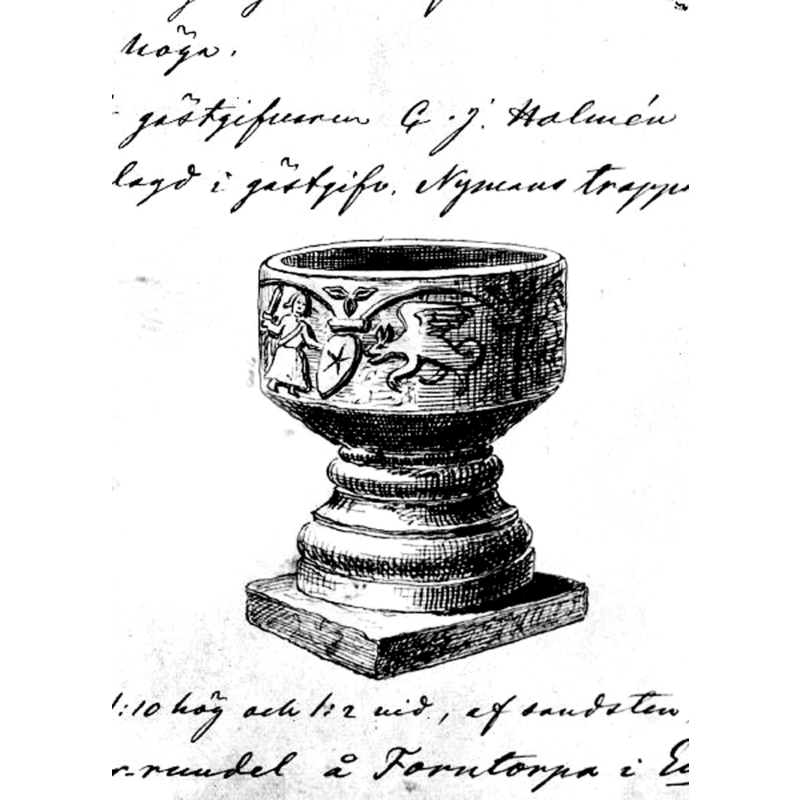 höga.
gästgifvaren C. J. Holmén
lagd i gästgifv. Nymans trapp
1:10 hög och 1:2 vid, af sandsten,
r-rundel å Forntorpa i